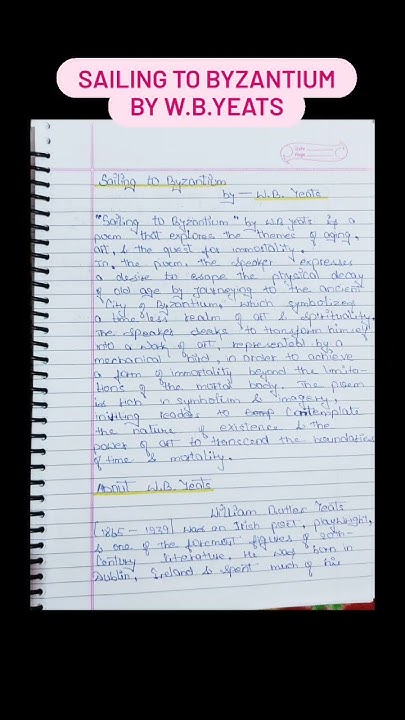 SAILING TO BYZANTIUM
BY W.B.YEATS
Date
Page
Sailing to Byzantium
by - W.B. Yeats
"Sailing to Byzantium" by W.B Yeats is a
poem that explores the themes of aging,
art, & the quest for immortality.
In the poem, the speaker expresses
a desire to escape the physical decay
of old age by journeying to the ancient
City of Byzantium, which symbolizes
a timeless realm of art & spirituality.
The speaker seeks to transform himself
into a work of art, represented by a
mechanical bird, in order to achieve
a form of immortality beyond the limita-
tions of the mortal body. The poem
is rich in symbolism & imagery,
inviting readers to Contemplate
the nature of existence & the
power of art to transcend the boundaries
of time & mortality.
About W.B. Yeats
William Butler Yeats
(1865 - 1939) was an Irish poet, playwright,
& one of the foremost figures of 20th-
Century literature. He was born in
Dublin, Ireland & spent much of his